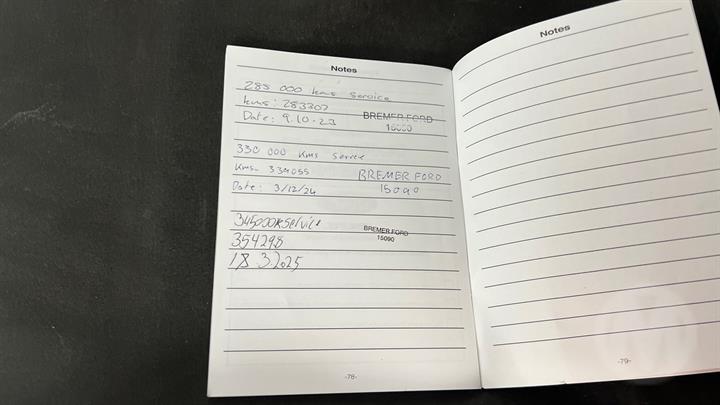 Notes
285 000 kms Service
kms: 283307
Date: 9.10.23
BREMER FORD
15090
330 000 kms Service
Kms- 334055
BREMER FORD
Date: 3/12/24
15090
345000k service
BREMER FORD
354298
15090
18.3.2025
-78-
Notes
-79-